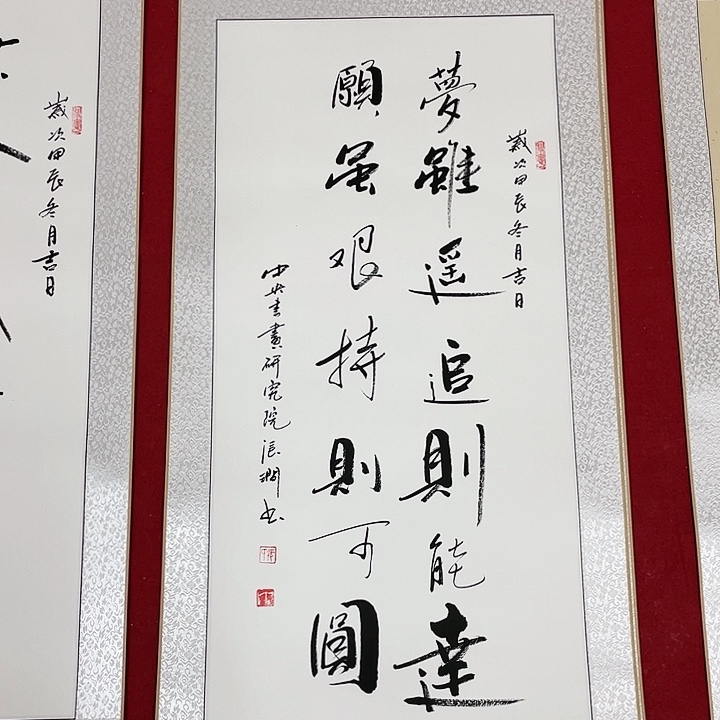 歲次甲辰冬月吉日
夢雖遥追則能達
願虽艰持則可圓
中央書畫研究院
歲次甲辰冬月吉日